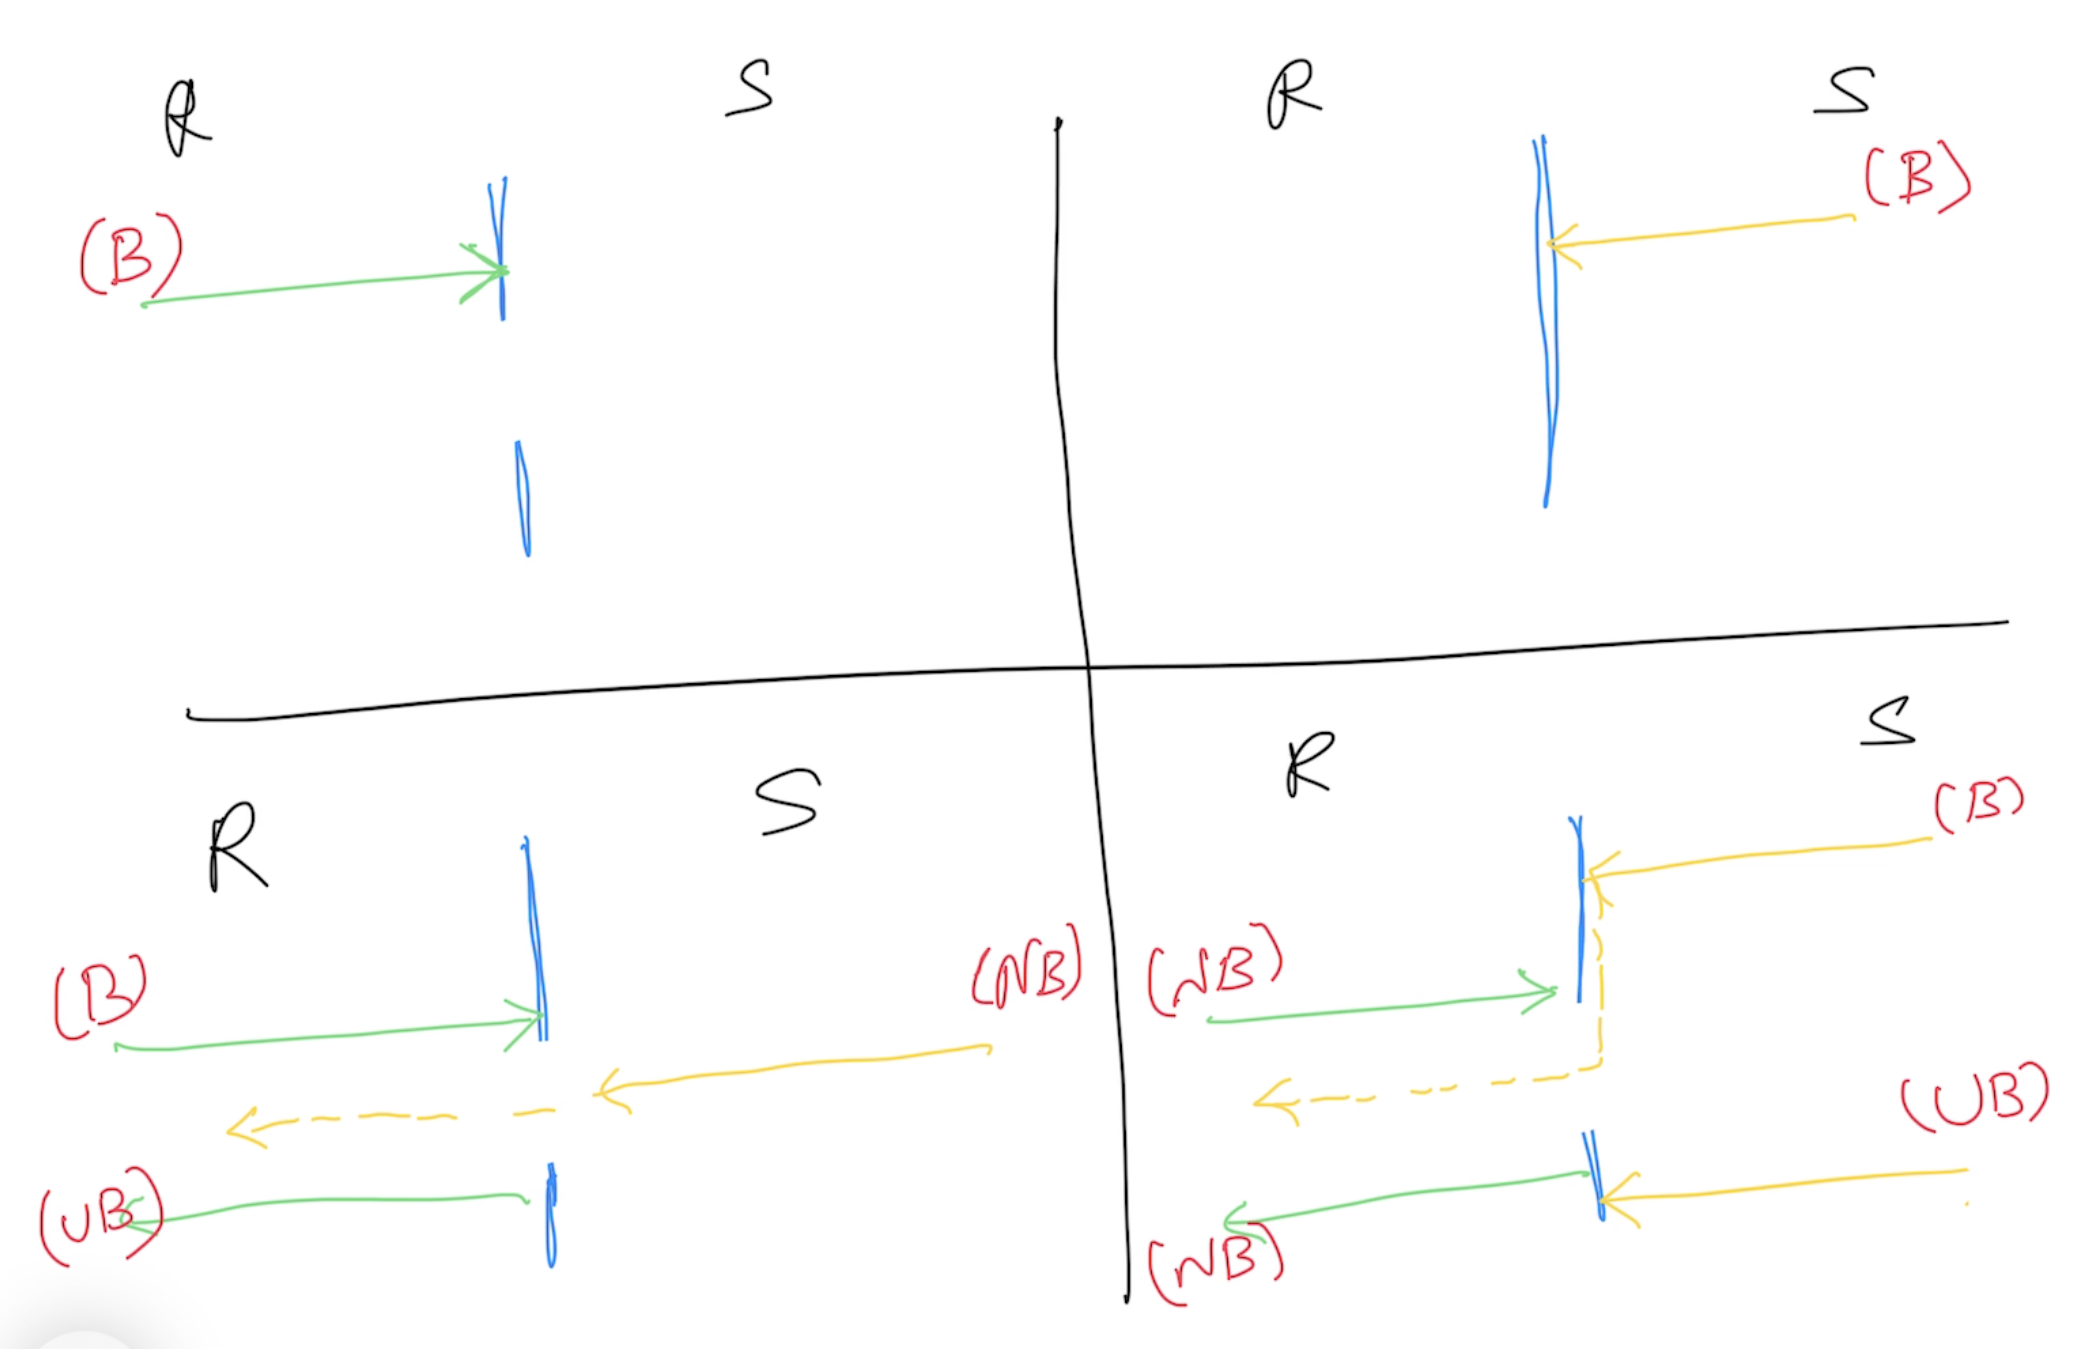 R S
(B)
R S
(B)
R S
(B) (NB)
(UB)
R S
(B)
(NB)
(UB)
(NB)